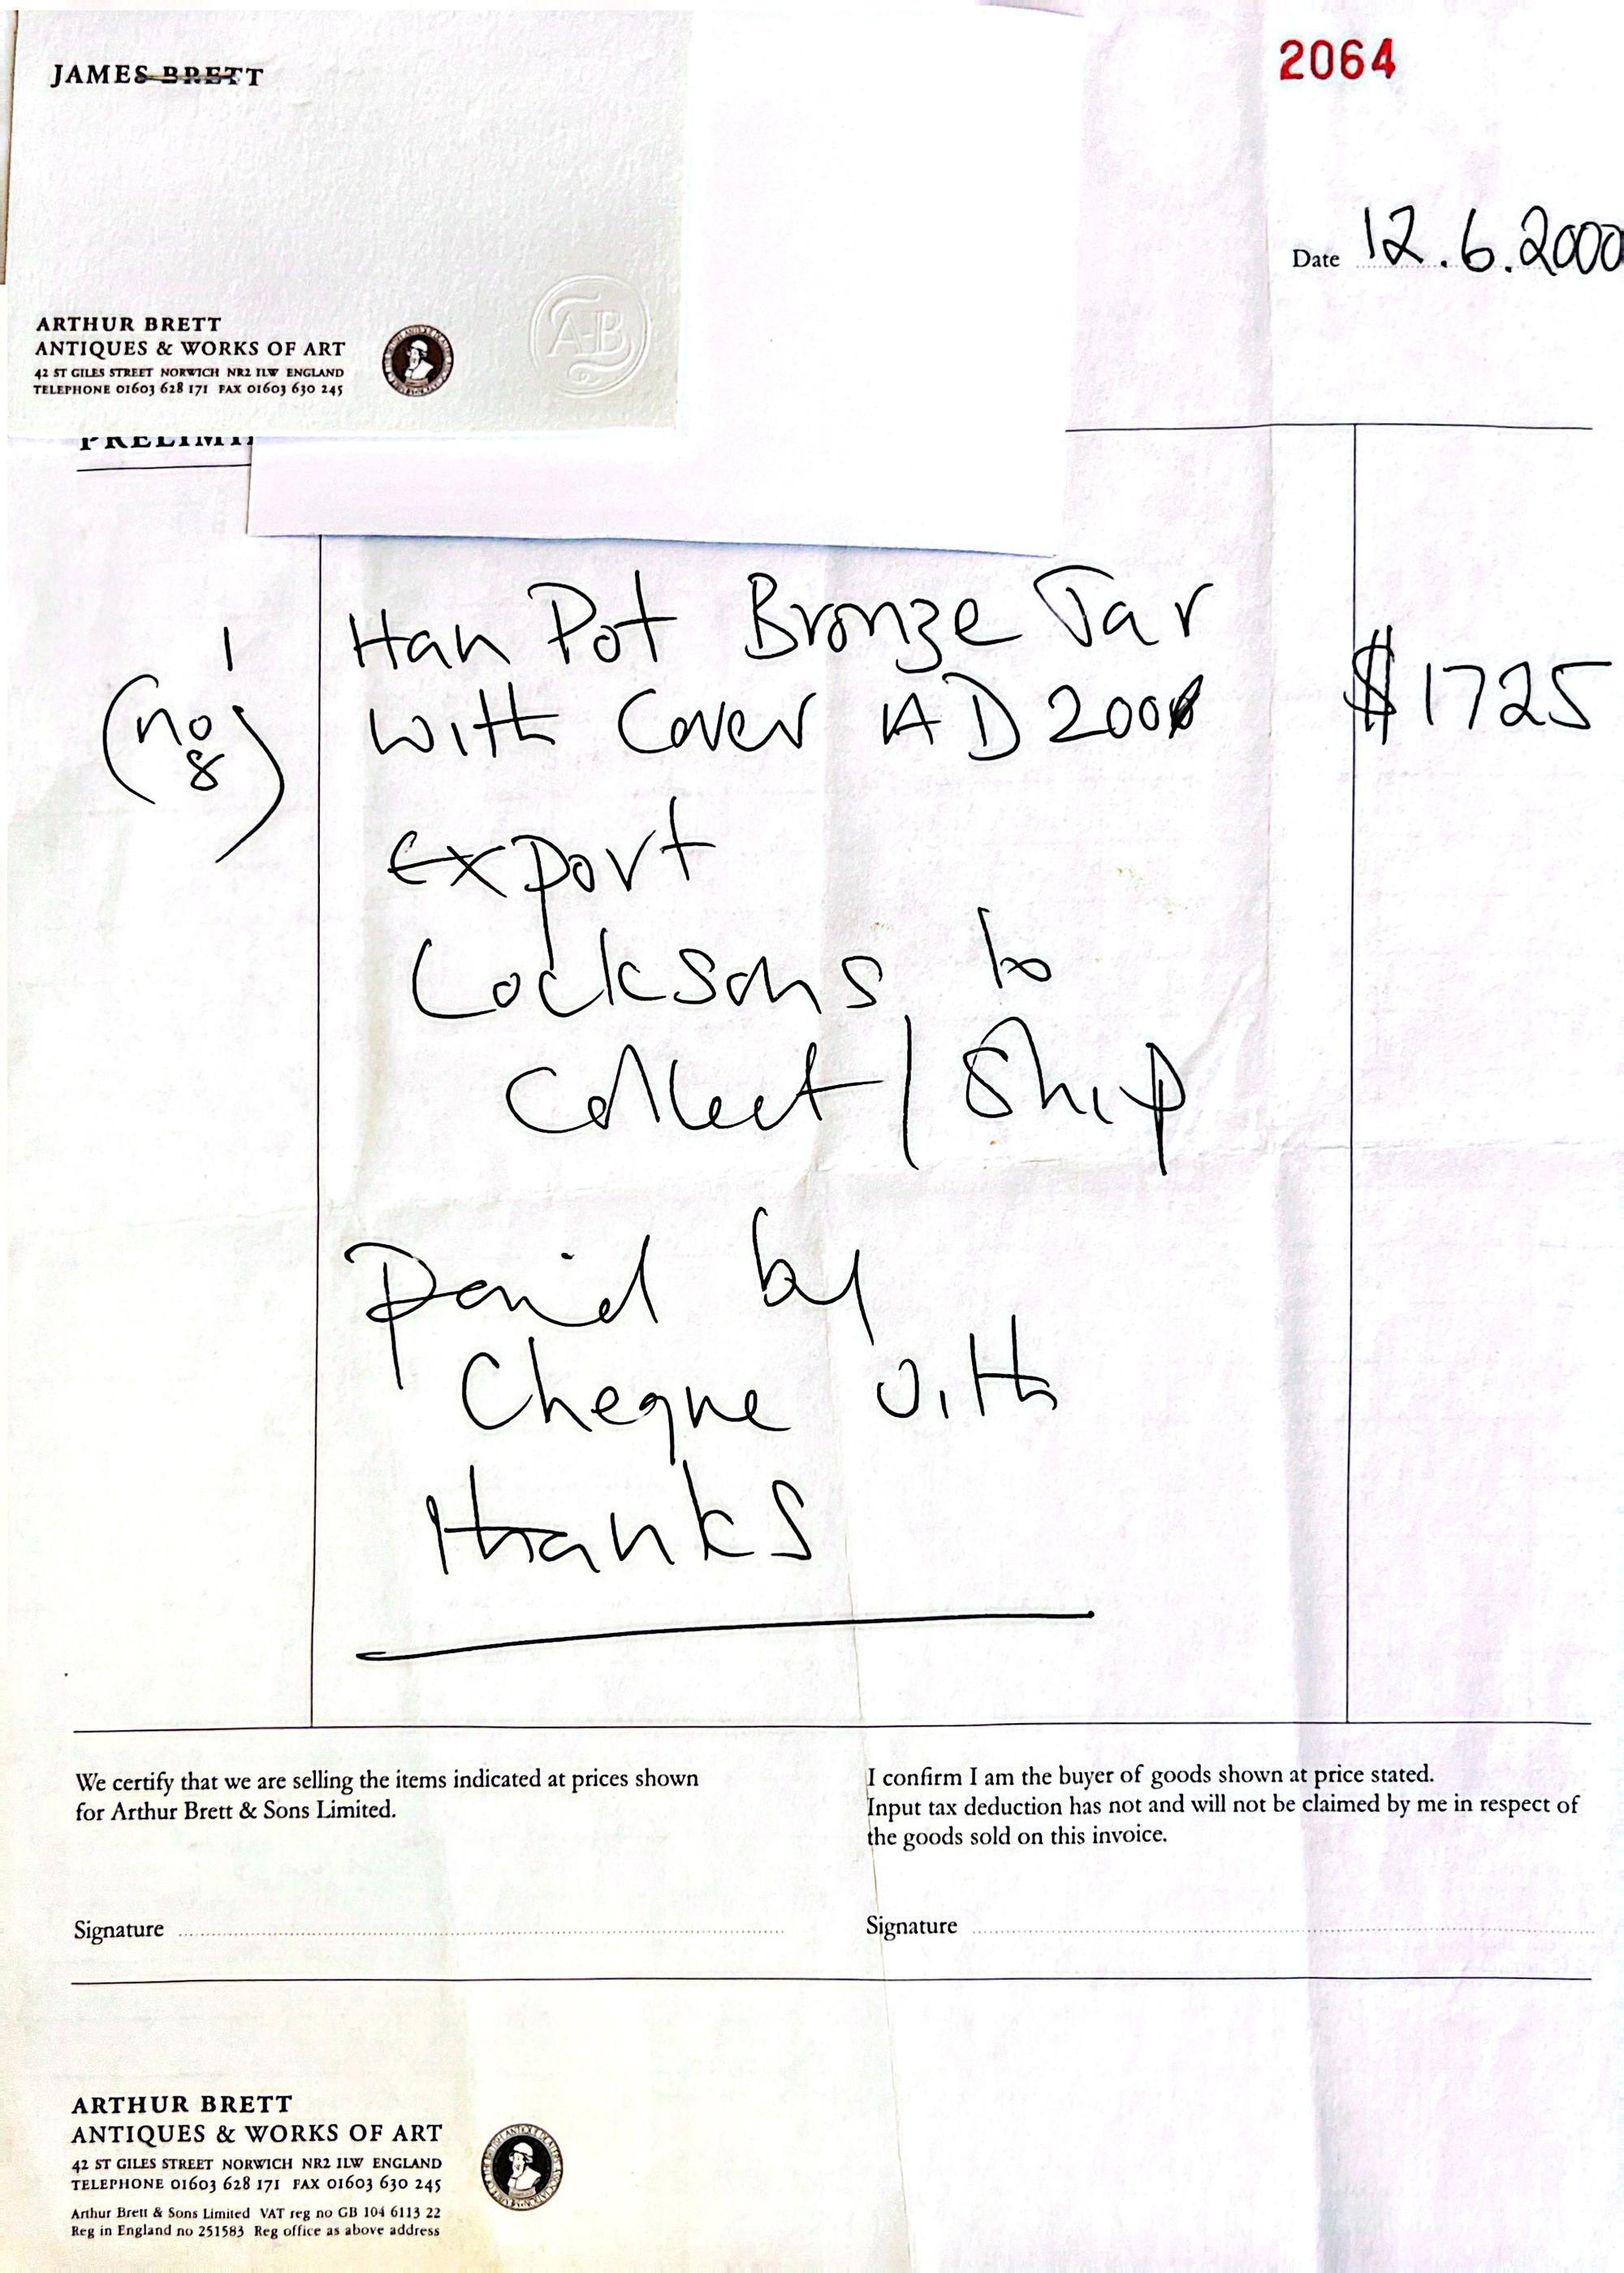 JAMES BRETT
2064
Date 12.6.2000
ARTHUR BRETT
ANTIQUES & WORKS OF ART
42 ST GILES STREET NORWICH NR2 1LW ENGLAND
TELEPHONE 01603 628 171 FAX 01603 630 245
A·B
1
(no 8)
Han Pot Bronze Jar
with Cover AD 200
$1725
Export
Locksons to
Collect / Ship
Paid by
Cheque with
thanks
We certify that we are selling the items indicated at prices shown
for Arthur Brett & Sons Limited.
Signature
I confirm I am the buyer of goods shown at price stated.
Input tax deduction has not and will not be claimed by me in respect of
the goods sold on this invoice.
Signature
ARTHUR BRETT
ANTIQUES & WORKS OF ART
42 ST GILES STREET NORWICH NR2 1LW ENGLAND
TELEPHONE 01603 628 171 FAX 01603 630 245
Arthur Brett & Sons Limited VAT reg no GB 104 6113 22
Reg in England no 251583 Reg office as above address